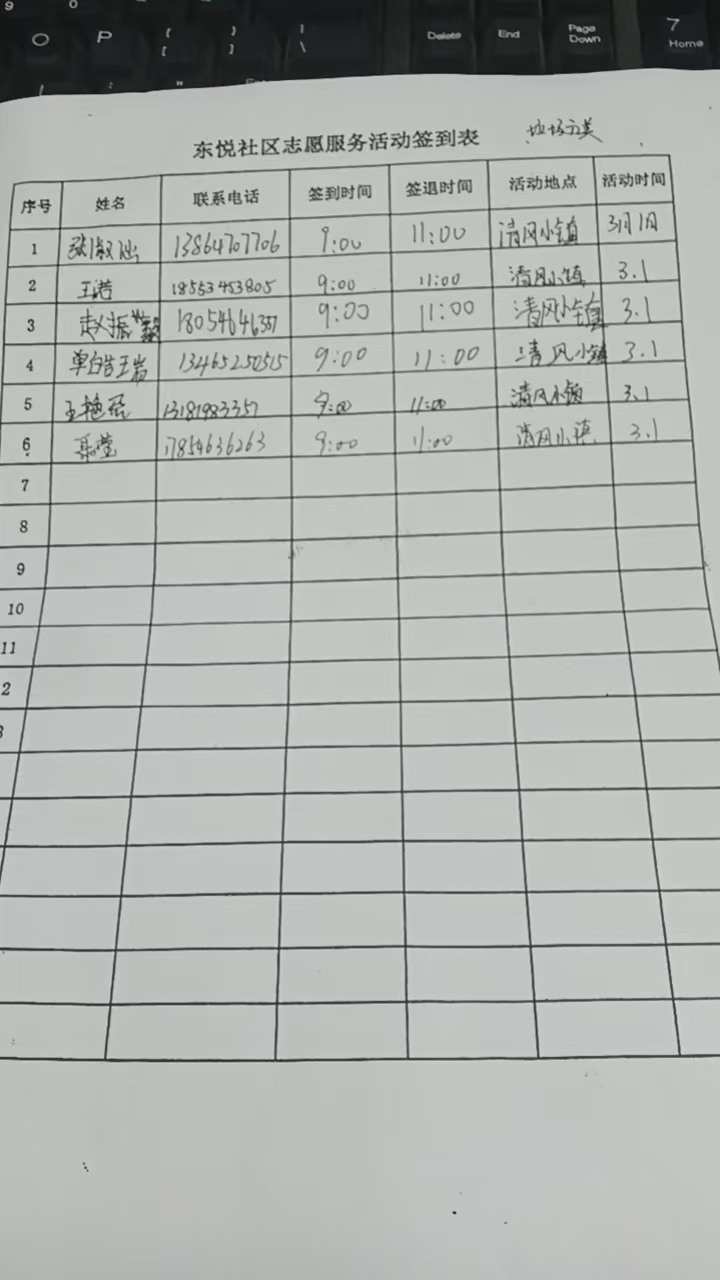 9 0
O P { [ } ] | \ Delete End Page Down 7 Home
东悦社区志愿服务活动签到表
序号 姓名 联系电话 签到时间 签退时间 活动地点 活动时间
1 13864707706 9:00 11:00 清风小镇 3月1日
2 王诺 18553453805 9:00 11:00 清风小镇 3.1
3 赵振 9:00 11:00 清风小镇 3.1
4 13465250515 9:00 11:00 清风小镇 3.1
5 王艳 13181983357 9:00 11:00 清风小镇 3.1
6 17854636263 9:00 11:00 清风小镇 3.1
7
8
9
10
11
2
3